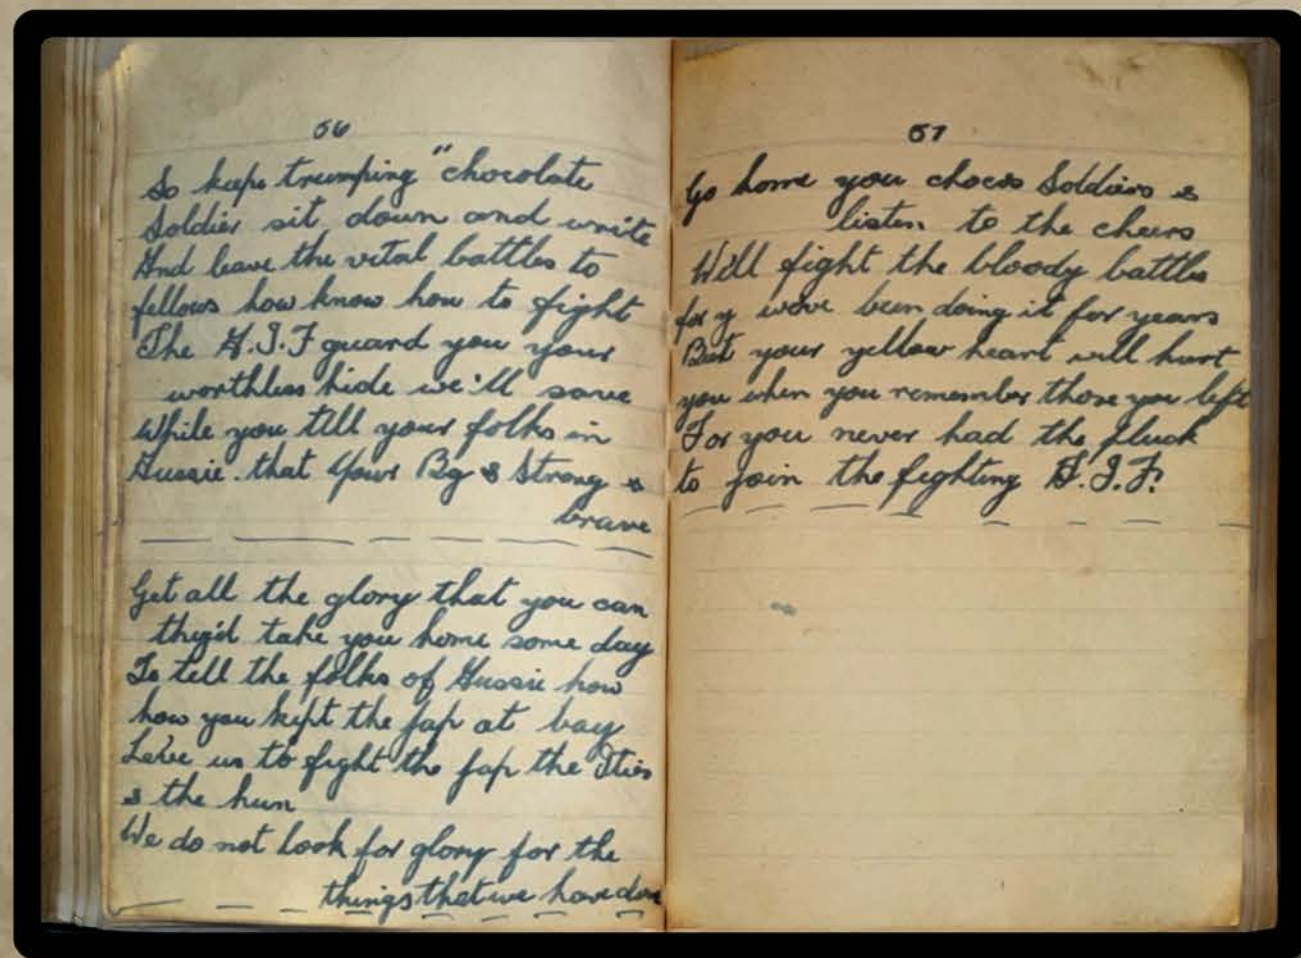 56
So keep trumping "chocolate
Soldier sit down and write
And leave the vital battles to
fellows how know how to fight
The A.I.F guard you your
worthless hide we'll save
While you tell your folks in
Aussie. that your Bg & Strong &
brave
Get all the glory that you can
they'd take you home some day
To tell the folks of Aussie how
how you kept the Jap at bay
Leave us to fight the Jap the Ities
& the hun
We do not look for glory for the
things that we have done
57
Go home you chocos Soldiers &
listen to the cheers
We'll fight the bloody battles
for y weve been doing it for years
But your yellow heart will hurt
you when you remember those you left
For you never had the pluck
to join the fighting A.I.F.